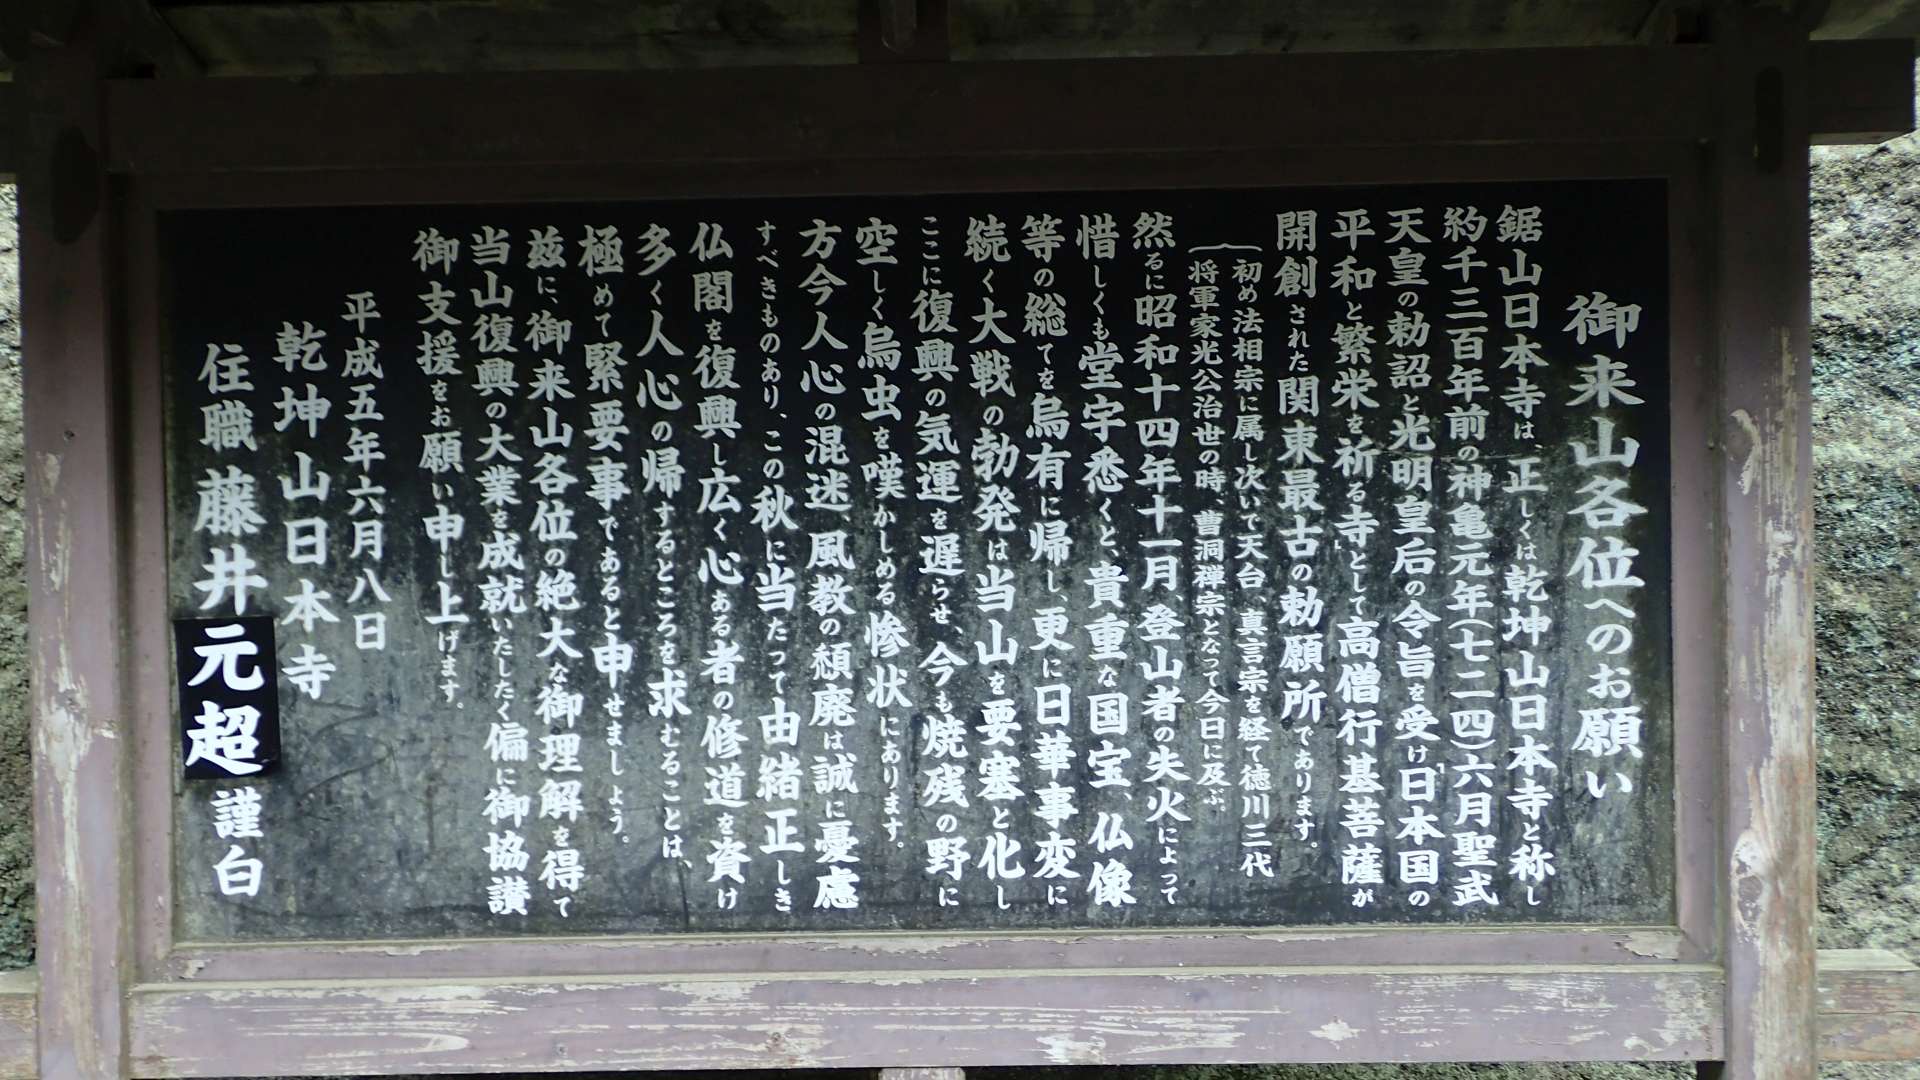 御来山各位へのお願い
鋸山日本寺は、正しくは乾坤山日本寺と称し
約千三百年前の神亀元年(七二四)六月聖武
天皇の勅詔と光明皇后の令旨を受け「日本国の
平和と繁栄を祈る寺」として高僧行基菩薩が
開創された関東最古の勅願所であります。
初め法相宗に属し次いで天台、真言宗を経て徳川三代
将軍家光公治世の時、曹洞禅宗となって今日に及ぶ。
然るに昭和十四年十一月、登山者の失火によって
惜しくも堂宇悉くと、貴重な国宝、仏像
等の総てを烏有に帰し、更に日華事変に
続く大戦の勃発は当山を要塞と化し
ここに復興の気運を遅らせ、今も焼残の野に
空しく烏虫を嘆かしめる惨状にあります。
方今人心の混迷、風教の頽廃は、誠に憂慮
すべきものあり、この秋に当たって由緒正しき
仏閣を復興し広く心ある者の修道を資け
多く人心の帰するところを求むることは、
極めて緊要事であると申せましょう。
茲に、御来山各位の絶大な御理解を得て
当山復興の大業を成就いたしたく偏に御協讃
御支援をお願い申し上げます。
平成五年六月八日
乾坤山日本寺
住職 藤井元超 謹白